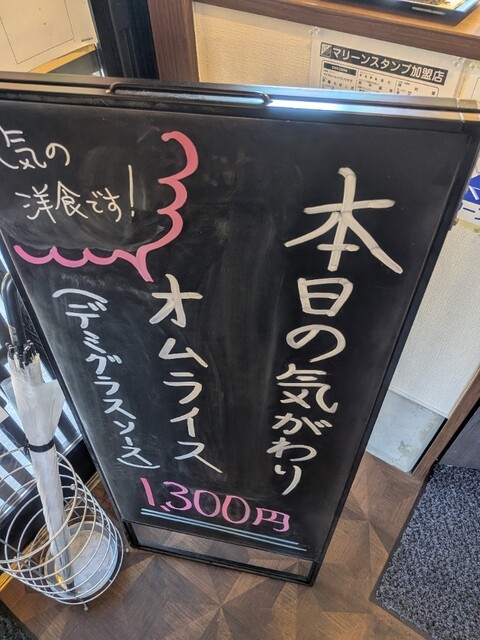 本日の気がわり
オムライス
(デミグラスソース)
1,300円
気の
洋食です!
マリーンスタンプ加盟店